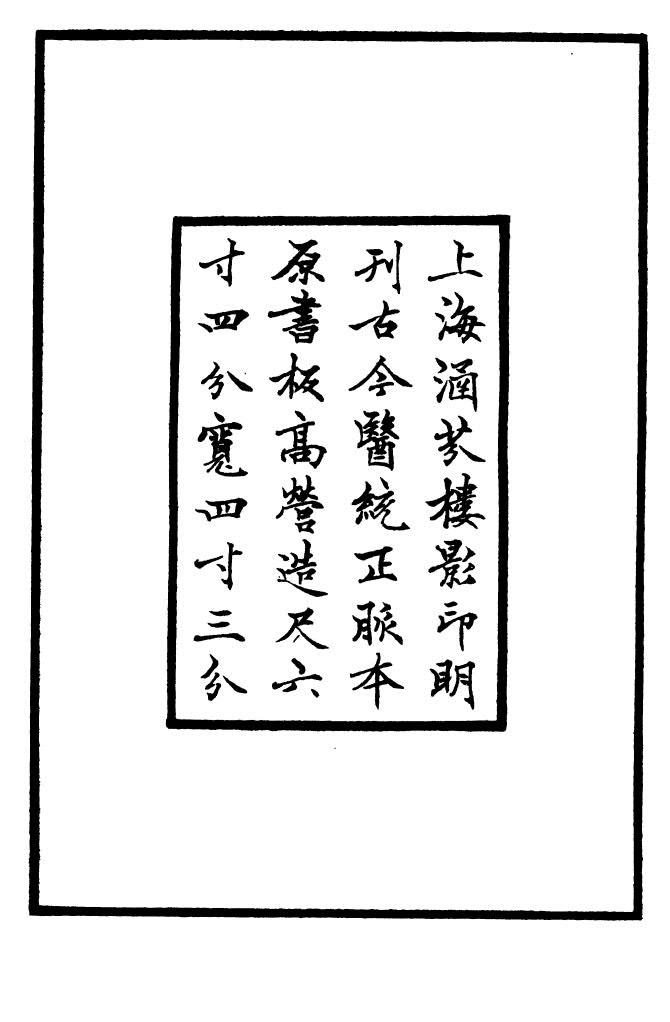 上海涵芬樓影印明
刊古今醫統正脈本
原書板高營造尺六
寸四分寬四寸三分